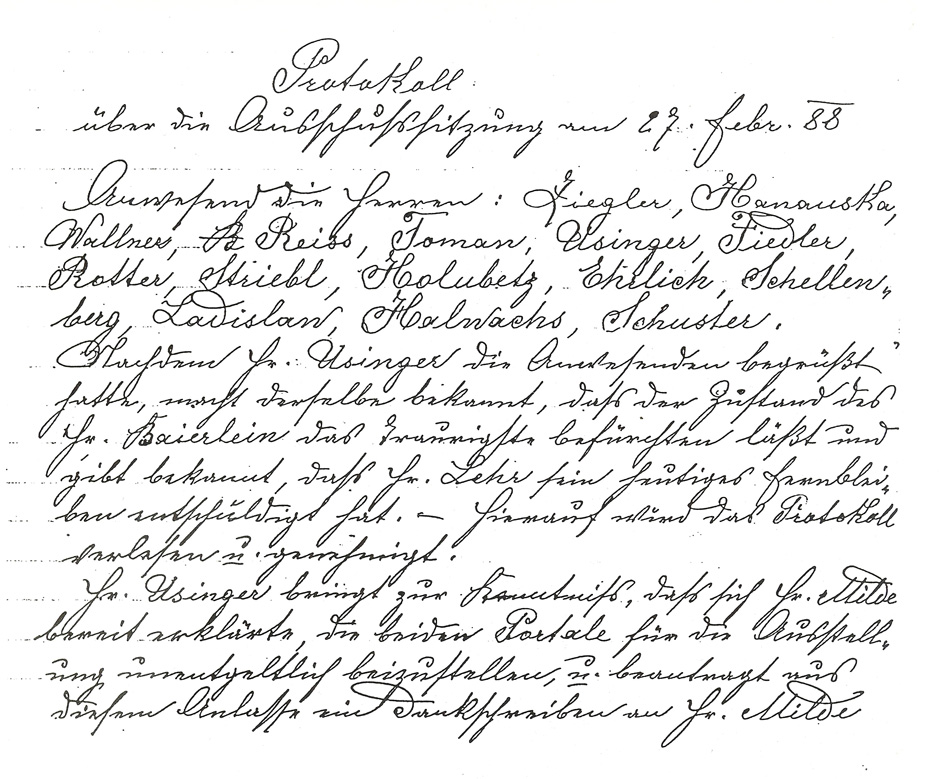 Protokoll
über die Ausschußsitzung am 27. Febr. 88
Anwesend die Herren: Ziegler, Hanauska,
Wallner, Reiss, Toman, Usinger, Fiedler,
Rotter, Striebl, Holubetz, Ehrlich, Schellen-
berg, Ladislav, Halwachs, Schuster.
Nachdem Hr. Usinger die Anwesenden begrüßt
hatte, macht derselbe bekannt, dass der Zustand des
Hr. Baierlein das Traurigste befürchten läßt und
gibt bekannt, dass Hr. Lehr sein heutiges Fernblei-
ben entschuldigt hat. – Hierauf wird das Protokoll
verlesen u. genehmigt.
Hr. Usinger bringt zur Kenntniss, dass sich Hr. Milde
bereit erklärte, die beiden Portale für die Ausstell-
ung unentgeltlich beizustellen, u. beantragt aus
diesem Anlasse ein Dankschreiben an Hr. Milde